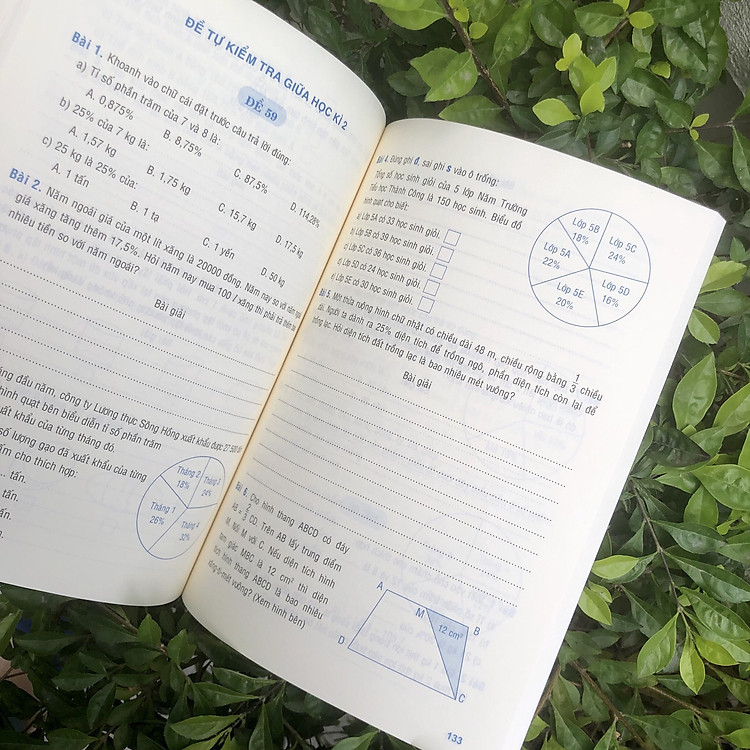 ĐỀ TỰ KIỂM TRA GIỮA HỌC KÌ 2
ĐỀ 59
Bài 1. Khoanh vào chữ cái đặt trước câu trả lời đúng:
a) Tỉ số phần trăm của 7 và 8 là:
A. 0,875% B. 8,75% C. 87,5% D. 114,28%
b) 25% của 7 kg là:
A. 1,57 kg B. 1,75 kg C. 15,7 kg D. 17,5 kg
c) 25 kg là 25% của:
A. 1 tấn B. 1 tạ C. 1 yến D. 50 kg
Bài 2. Năm ngoái giá của một lít xăng là 20000 đồng. Năm nay so với năm ngoái
giá xăng tăng thêm 17,5%. Hỏi năm nay mua 100 l xăng thì phải trả thêm bao
nhiêu tiền so với năm ngoái?
Bài giải
đầu năm, công ty Lương thực Sông Hồng xuất khẩu được 27 500
hình quạt bên biểu diễn tỉ số phần trăm
xuất khẩu của từng tháng đó.
số lượng gạo đã xuất khẩu của từng
chấm cho thích hợp:
... tấn.
tấn.
tấn.
n.
Tháng 2
18%
Tháng 3
24%
Tháng 1
26%
Tháng 4
32%
Bài 4. Đúng ghi đ, sai ghi s vào ô trống:
Tổng số học sinh giỏi của 5 lớp Năm Trường
Tiểu học Thành Công là 150 học sinh. Biểu đồ
hình quạt cho biết:
a) Lớp 5A có 33 học sinh giỏi.
b) Lớp 5B có 39 học sinh giỏi.
c) Lớp 5C có 36 học sinh giỏi.
d) Lớp 5D có 24 học sinh giỏi.
e) Lớp 5E có 30 học sinh giỏi.
Lớp 5B
18%
Lớp 5C
24%
Lớp 5A
22%
Lớp 5D
16%
Lớp 5E
20%
Bài 5. Một thửa ruộng hình chữ nhật có chiều dài 48 m, chiều rộng bằng 1/3 chiều
dài. Người ta dành ra 25% diện tích để trồng ngô, phần diện tích còn lại để
trồng lạc. Hỏi diện tích đất trồng lạc là bao nhiêu mét vuông?
Bài giải
Bài 6. Cho hình thang ABCD có đáy
AB = 2/3 CD. Trên AB lấy trung điểm
M. Nối M với C. Nếu diện tích hình
tam giác MBC là 12 cm² thì diện
tích hình thang ABCD là bao nhiêu
xăng-ti-mét vuông? (Xem hình bên)
A
M
B
12 cm²
D
C
133